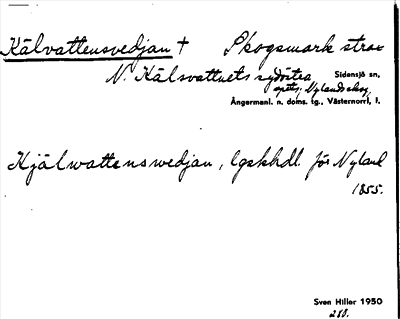 Kälvattensvedjan † Skogsmark strax
N. Kälsvattnets sydöstra Sidensjö sn,
spets, Nylands skog,
Ångermanl. n. doms. tg., Västernorrl, l.
Kjälwattenswedjan, lgskhdl. för Nyland
1855.
Sven Hiller 1950